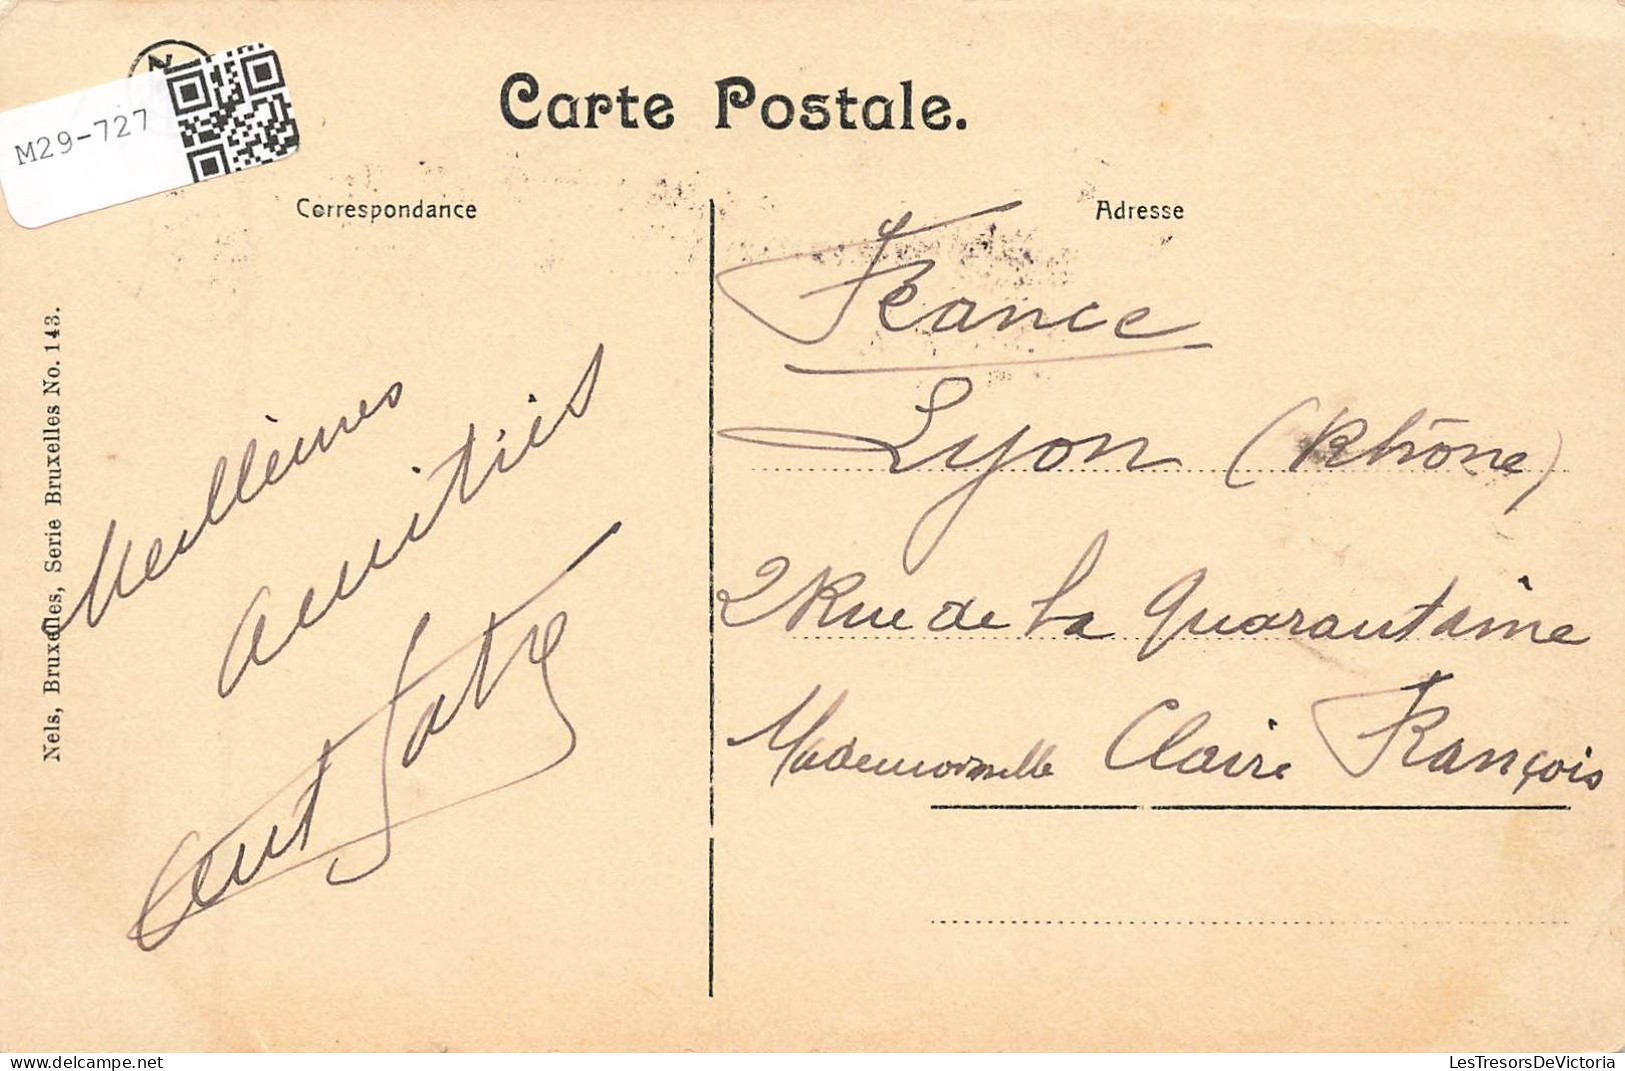 N
M29-727
Carte Postale.
Correspondance
Adresse
Nels, Bruxelles, Serie Bruxelles No. 143.
Meilleures
amitiés
France
Lyon (Rhône)
2 Rue de la Quarantaine
Mademoiselle Claire François
delcampe.net
LesTresorsDeVictoria